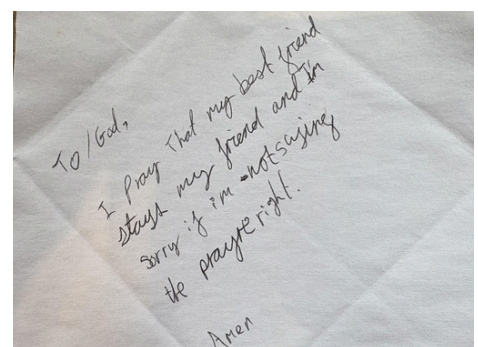 To/God,
I Pray That my best friend
stays my friend and I'm
sorry if i'm not saying
the prayre right.
Amen